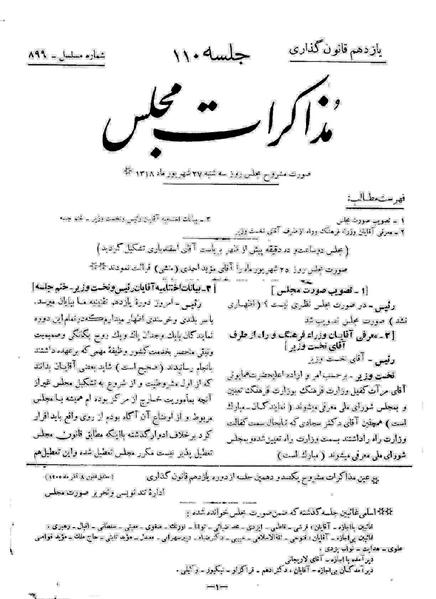 یازدهم قانون گذاری
جلسه ۱۱۰
شماره مسلسل - ۸۹۹
مذاکرات مجلس
صورت مشروح مجلس روز سه شنبه ۲۷ شهریور ماه ۱۳۱۸
فهرست مطالب:
۱ - تصویب صورت مجلس
۲ - معرفی آقایان وزراء فرهنگ و راه از طرف آقای نخست وزیر
۳ - بیانات اختتامیه آقایان رئیس و نخست وزیر - ختم جلسه
(مجلس دو ساعت و ده دقیقه پیش از ظهر بریاست آقای اسفندیاری تشکیل گردید)
صورت مجلس روز ۲۵ شهریور ماه را آقای مؤید احمدی (منشی) قرائت نمودند
[۱ - تصویب صورت مجلس]
رئیس - در صورت مجلس نظری نیست؟ (اظهاری
نشد) صورت مجلس تصویب شد
[۲ - معرفی آقایان وزراء فرهنگ و راه از طرف
آقای نخست وزیر]
رئیس - آقای نخست وزیر
نخست وزیر - برحسب امر و اراده اعلیحضرت همایونی
آقای مرآت کفیل وزارت فرهنگ بوزارت فرهنگ تعیین
و بمجلس شورای ملی معرفی میشوند (نمایندگان - مبارک
است) همچنین آقای دکتر سجادی که تا بحال سمت کفالت
وزارت راه را داشتند بسمت وزارت راه تعیین شده و بمجلس
شورای ملی معرفی میشوند (مبارک است)
[۳ - بیانات اختتامیه آقایان رئیس و نخست وزیر - ختم جلسه]
رئیس - امروز دورۀ یازدهم تقنینیه ما بپایان میرسد.
با سر بلندی و خرسندی اظهار میدارم که در تمام این دوره
نمایندگان با یک وجدان پاک و یک روح یگانگی و صمیمیت
و نیتی منحصر بخدمت کشور وظیفۀ مهمی که بر عهده داشتند
بانجام رسانیدند (صحیح است) شاید بعضی آقایان بدانند
که از اول مشروطیت و از شروع به تشکیل مجلس غیر از
آنچه بمأموریت خارج از مرکز بوده ام همیشه با مجلس
مربوط و از اوضاع آن آگاه بودم از روی واقع باید اقرار
کرد بر خلاف ادوار گذشته با اینکه مطابق قانون مجلس
تعطیل پذیر نیست مکرر مجلس تعطیل شده و این تعطیل هم
عین مذاکرات مشروح یکصد و دهمین جلسه از دوره یازدهم قانون گذاری
اداره تند نویسی و تحریر صورت مجلس
اسامی غائبین جلسه گذشته که ضمن صورت مجلس خوانده شده: